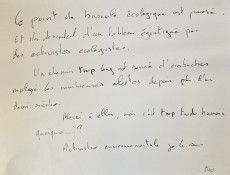 Le point de bascule écologique est passé.
Et ils décident d'un tableau égratigné par
des activistes écologistes.
Un chemin trop long et semé d'embûches
malgré les nombreuses alertes depuis plus d'un
demi siècle.
Merci à elles, mais c'est trop tard humains
quoique...?
Activistes environnementales je le suis